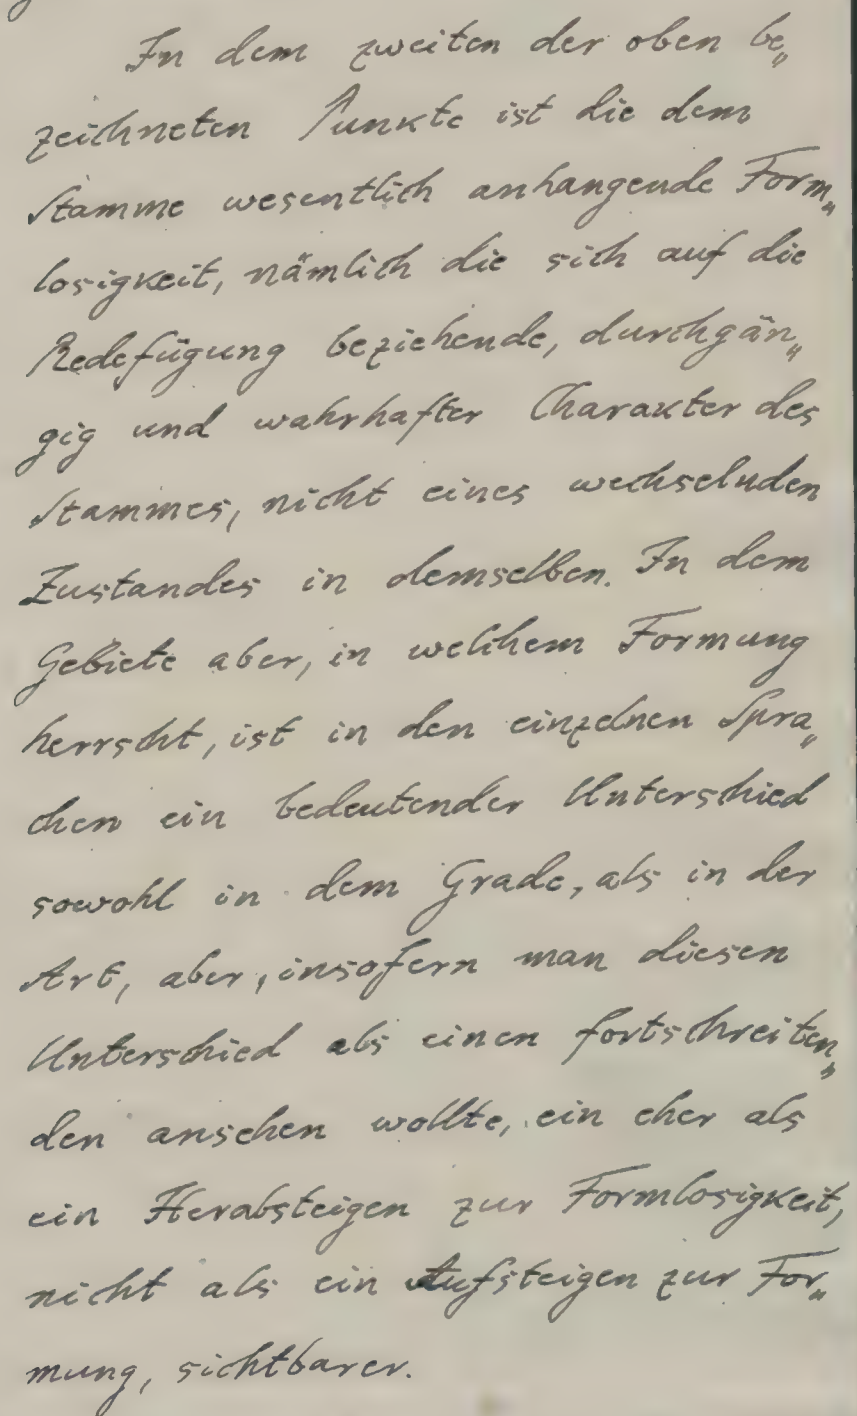 In dem zweiten der oben be„
zeichneten Punkte ist die dem
Stamme wesentlich anhangende Form„
losigkeit, nämlich die sich auf die
Redefügung beziehende, durchgän„
gig und wahrhafter Charakter des
Stammes, nicht eines wechselnden
Zustandes in demselben. In dem
Gebiete aber, in welchem Formung
herrscht, ist in den einzelnen Spra„
chen ein bedeutender Unterschied
sowohl in dem Grade, als in der
Art, aber, insofern man diesen
Unterschied als einen fortschreiten„
den ansehen wollte, ein eher als
ein Herabsteigen zur Formlosigkeit,
nicht als ein Aufsteigen zur For„
mung, sichtbarer.